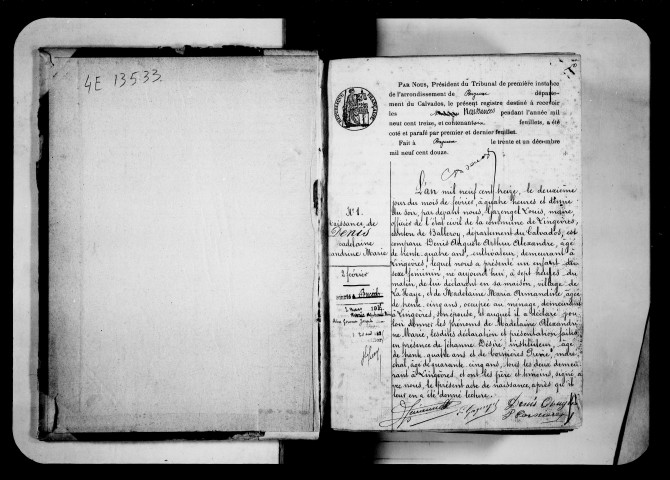 4E 13533
PAR NOUS, Président du Tribunal de première instance
de l'arrondissement de Bayeux départe-
ment du Calvados, le présent registre destiné à recevoir
les Naissances pendant l'année mil
neuf cent treize, et contenant feuillets, a été
coté et parafé par premier et dernier feuillet.
Fait à Bayeux le trente et un décembre
mil neuf cent douze.
N° 1
Naissance de
Denis
Madelaine
Alexandrine Marie
2 février
L'an mil neuf cent treize, le deuxième
jour du mois de février, à quatre heures et demie
du soir, par devant nous, Marengel Louis, maire,
officier de l'état civil de la commune de Lingèvres,
canton de Balleroy, département du Calvados, est
comparu Denis Auguste Arthur Alexandre, âgé
de trente quatre ans, cultivateur, demeurant à
Lingèvres, lequel nous a présenté un enfant du
sexe féminin, né aujourd'hui, à sept heures du
matin, de lui déclarant en sa maison, village de
La Haye, et de Madelaine Maria Armandine, âgée
de trente cinq ans, occupée au ménage, demeurant
à Lingèvres, son épouse, et auquel il a déclaré vou-
loir donner les prénoms de Madelaine Alexandri-
ne Marie, lesdites déclaration et présentation faites
en présence de Jéhanne Désiré, instituteur, âgé
de trente quatre ans et de Cornières René, maré-
chal, âgé de quarante cinq ans, tous les deux demeu-
rant à Lingèvres, et ont les père et témoins, signé a-
vec nous, le présent acte de naissance, après qu'il
leur en a été donné lecture.
Denis Auguste